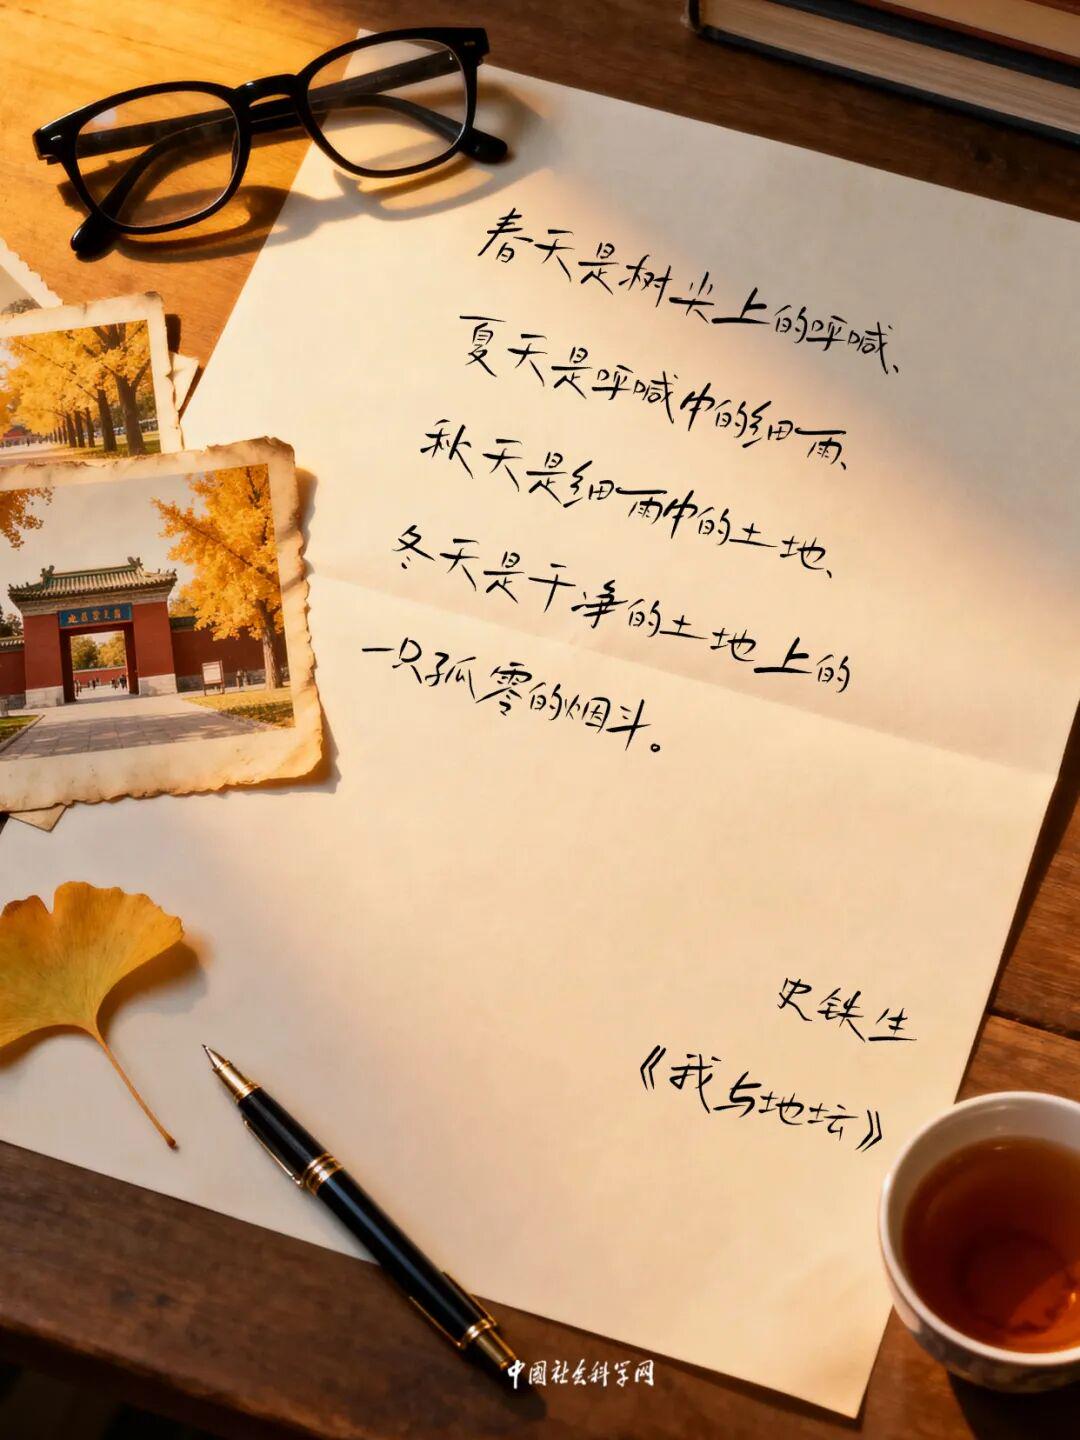 春天是树尖上的呼喊、
夏天是呼喊中的细雨、
秋天是细雨中的土地、
冬天是干净的土地上的
一只孤零的烟斗。
史铁生
《我与地坛》
中国社会科学网